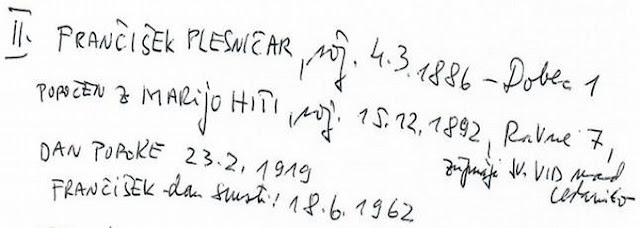 II. FRANČIŠEK PLESNIČAR, roj. 4.3.1886 – Dobec 1
POROČEN Z MARIJO HITI, roj. 15.12.1892, Ravne 7,
župnija sv. VID nad
Cerknico
DAN POROKE 23.2.1919
FRANČIŠEK - dan smrti: 18.6.1962